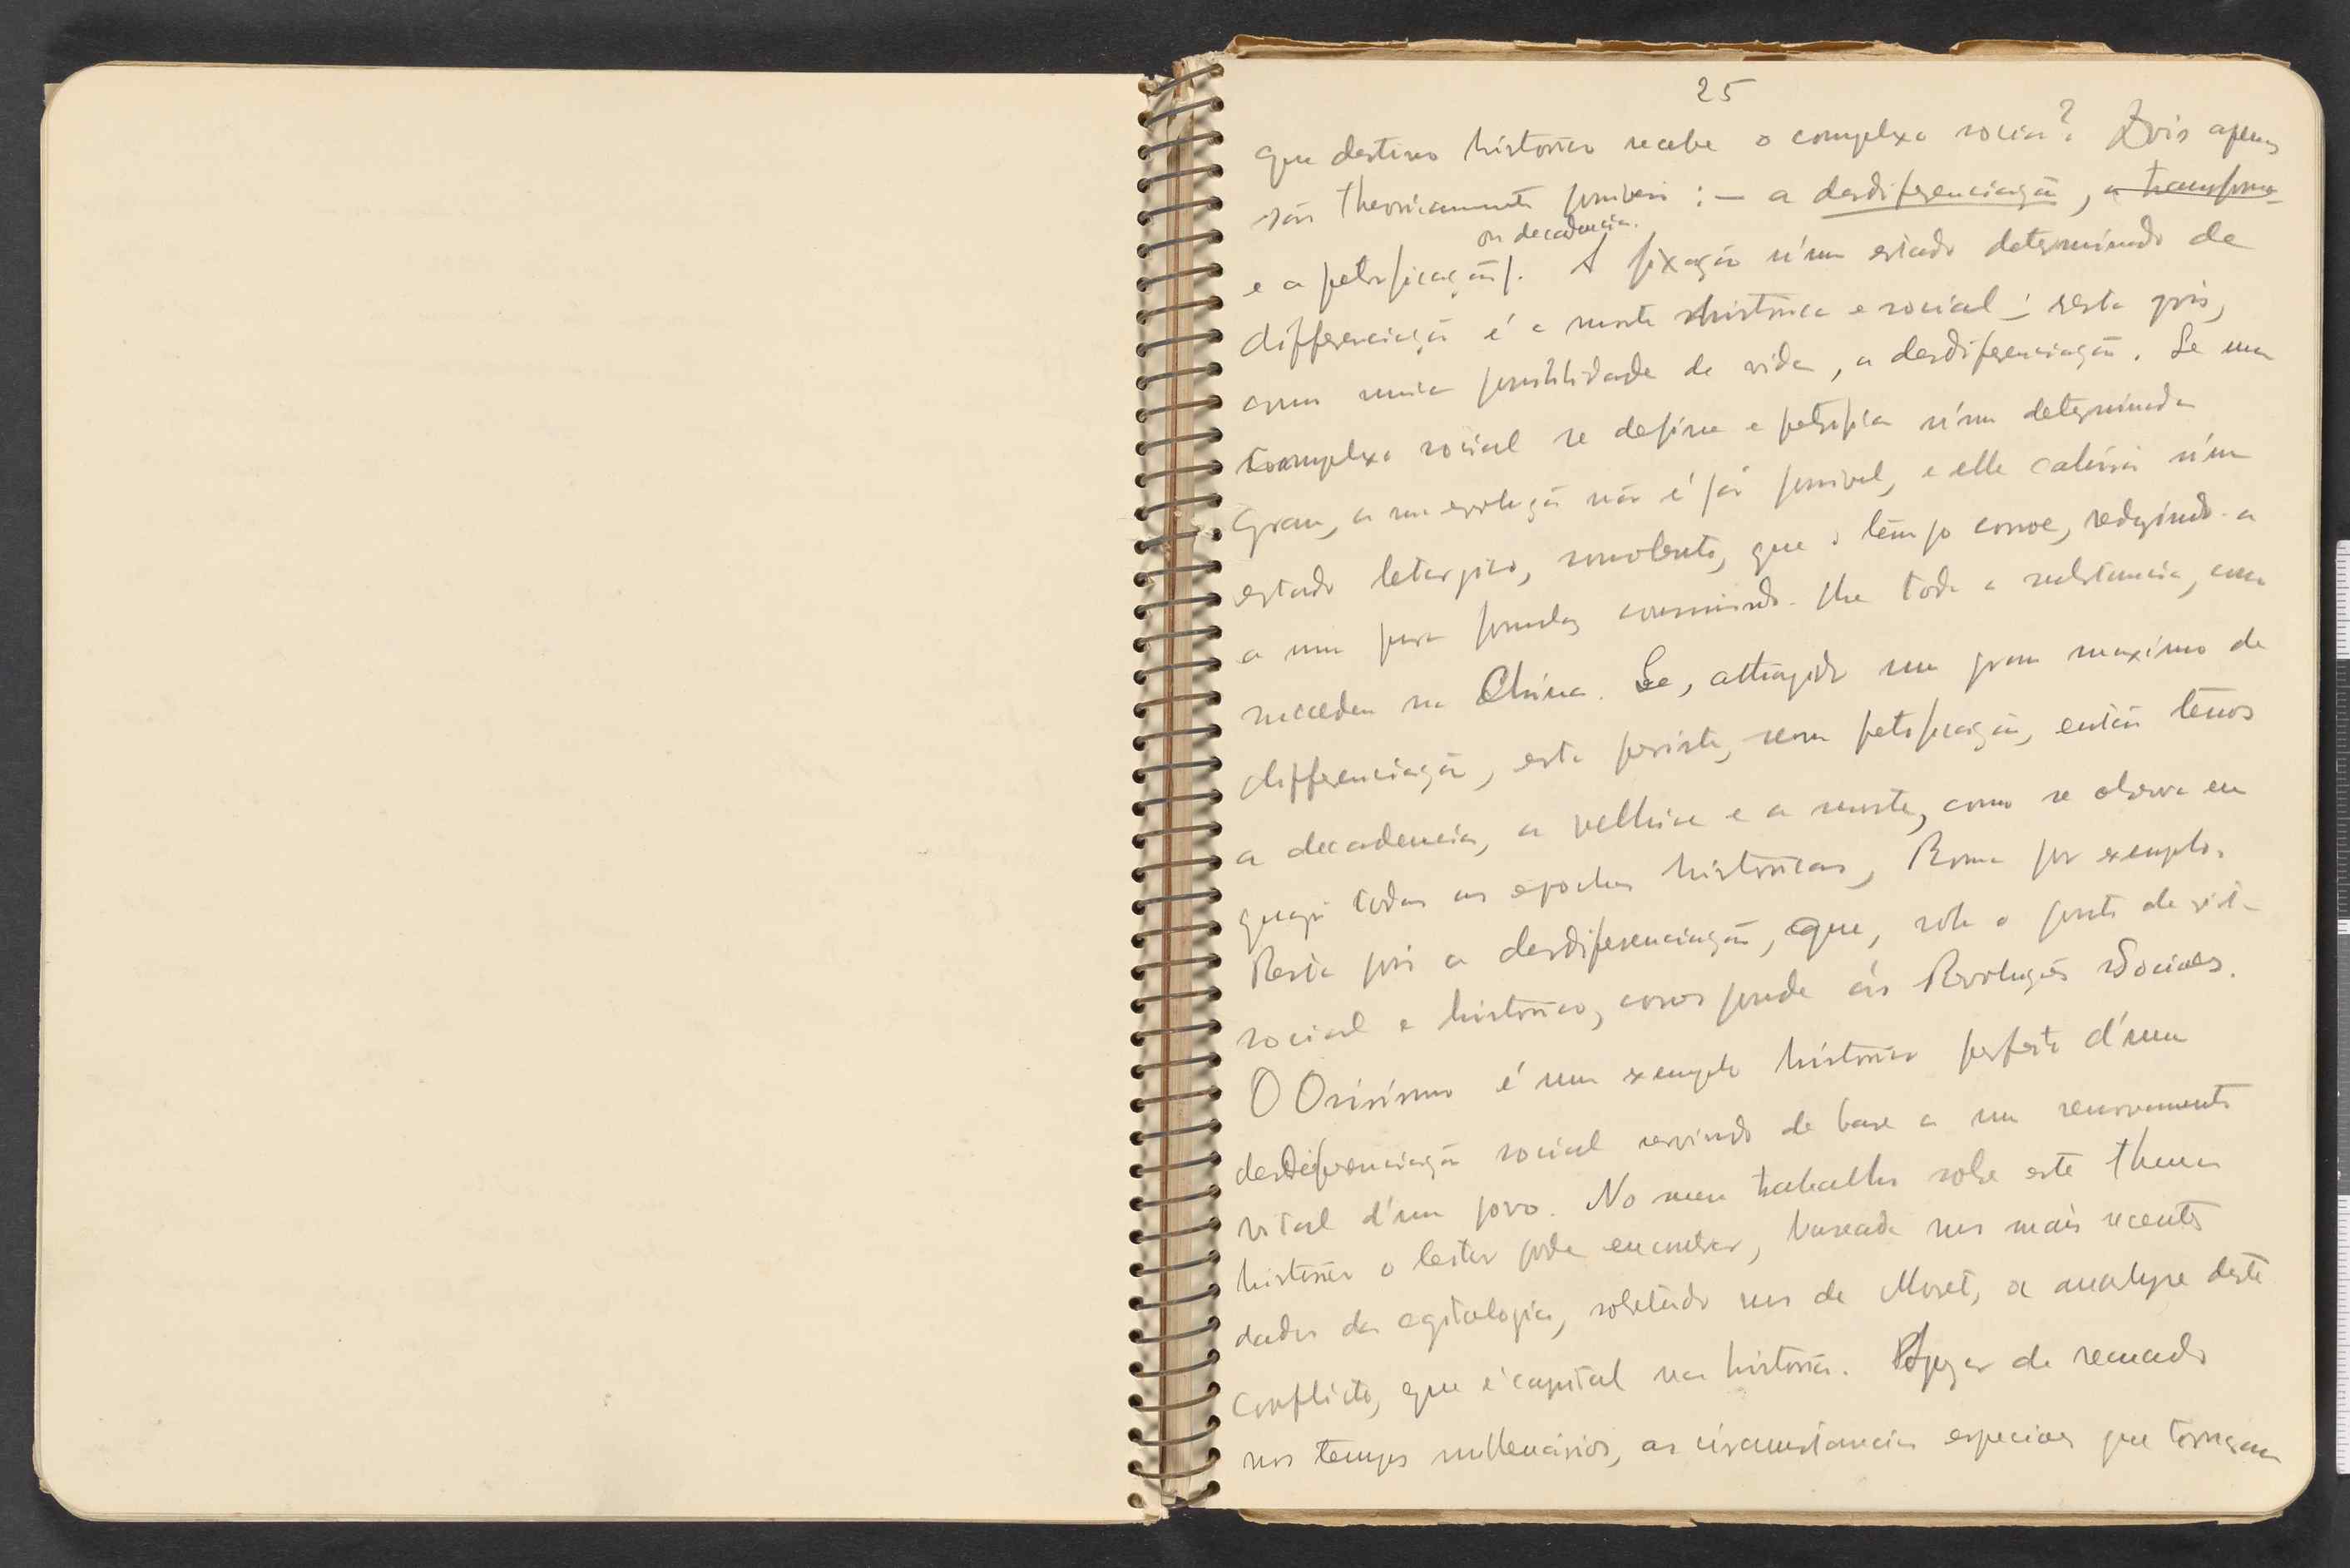 25
que destino historico recebe o complexo social? Dois apenas
são theoricamente possiveis : — a desdiferenciação, a transforma-
ou decadencia.
e a petrificação/. A fixação n'um estado determinado de
differenciação é a morte historica e social; resta pois,
como unica possibilidade de vida, a desdiferenciação. Se um
complexo social se define e petrifica n'um determinado
grau, a sua evolução não é já possivel, e elle cahirá n'um
estado letargico, somolento, que o tempo corroe, reduzindo-a
a uma pura formula, consumindo-lhe toda a substancia, como
succedeu na China. Se, attingido um grau maximo de
differenciação, esta persiste, sem petrificação, então temos
a decadencia, a velhice e a morte, como se observa em
quasi todas as epochas historicas, Roma por exemplo.
Resta pois a desdiferenciação, que, sob o ponto de vista
social e historico, corresponde ás Revoluções Sociaes.
O Osirismo é um exemplo historico perfeito d'uma
desdiferenciação social servindo de base a um renovamento
vital d'um povo. No meu trabalho sobre este thema
historico o leitor pode encontrar, baseada nos mais recentes
dados da egitologia, sobretudo nos de Moret, a analyse deste
conflicto, que é capital na historia. Apezar de recuado
nos tempos millenarios, as circumstancias especiaes que tornaram